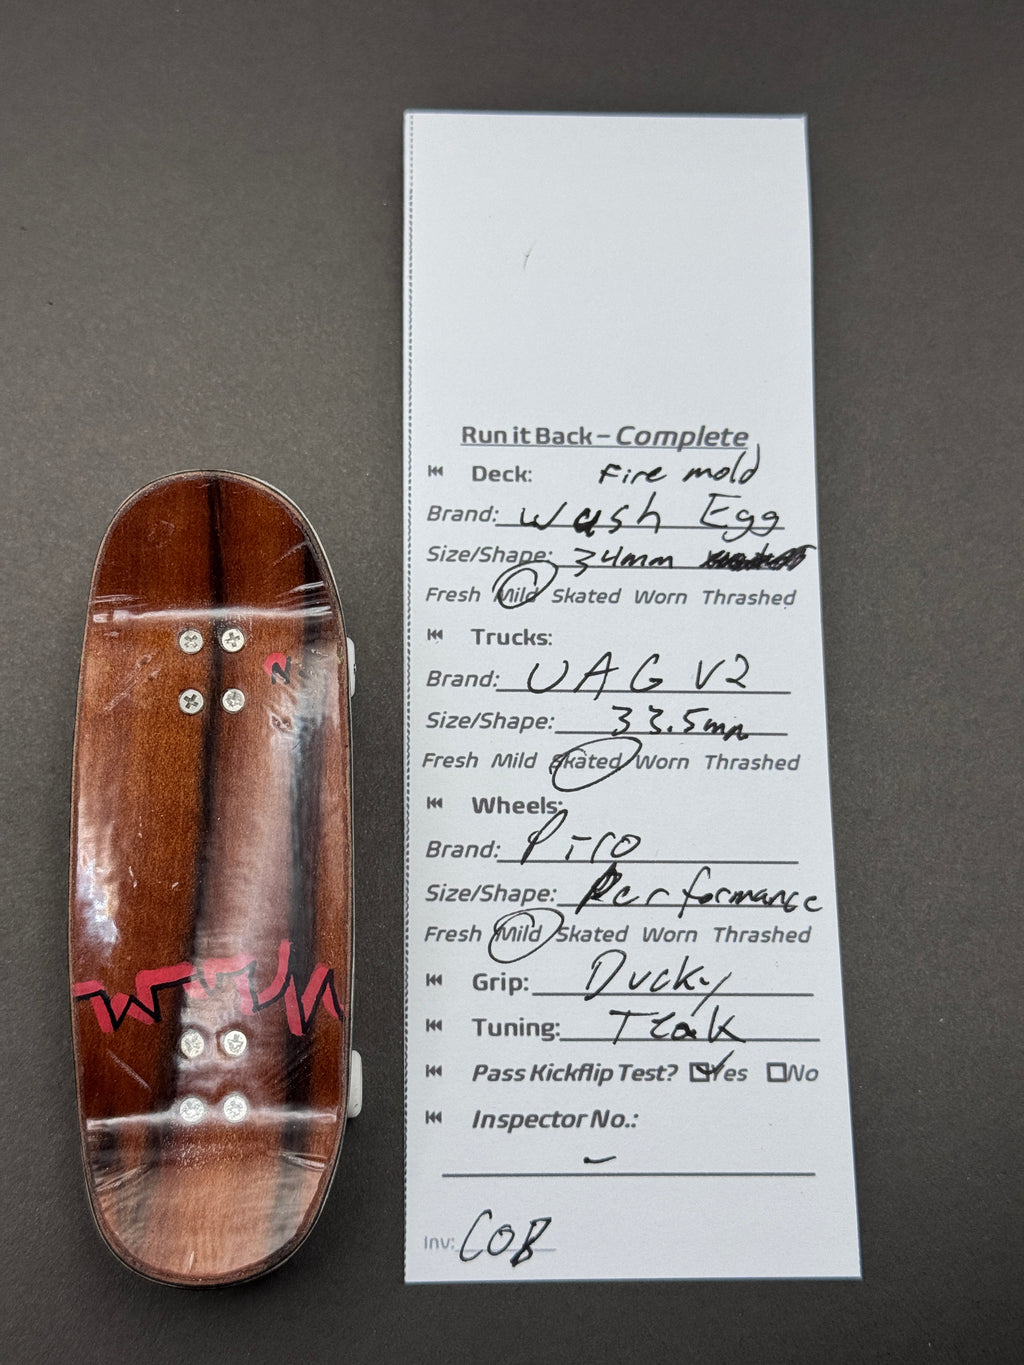 Run it Back – Complete
Deck: Fire mold
Brand: Wash Egg
Size/Shape: 34mm
Fresh Mild Skated Worn Thrashed
Trucks:
Brand: UAG V2
Size/Shape: 33.5mm
Fresh Mild Skated Worn Thrashed
Wheels:
Brand: Piro
Size/Shape: Performance
Fresh Mild Skated Worn Thrashed
Grip: Ducky
Tuning: Teak
Pass Kickflip Test? Yes No
Inspector No.:
Inv: COB